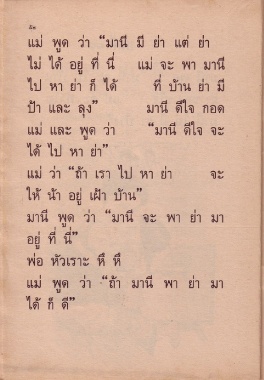 แม่ พูด ว่า “มานี มี ย่า แต่ ย่า
ไม่ ได้ อยู่ ที่ นี่ แม่ จะ พา มานี
ไป หา ย่า ก็ ได้ ที่ บ้าน ย่า มี
ป้า และ ลุง” มานี ดีใจ กอด
แม่ และ พูด ว่า “มานี ดีใจ จะ
ได้ ไป หา ย่า”
แม่ ว่า “ถ้า เรา ไป หา ย่า จะ
ให้ น้า อยู่ เฝ้า บ้าน”
มานี พูด ว่า “มานี จะ พา ย่า มา
อยู่ ที่ นี่”
พ่อ หัวเราะ หึ หึ
แม่ พูด ว่า “ถ้า มานี พา ย่า มา
ได้ ก็ ดี”